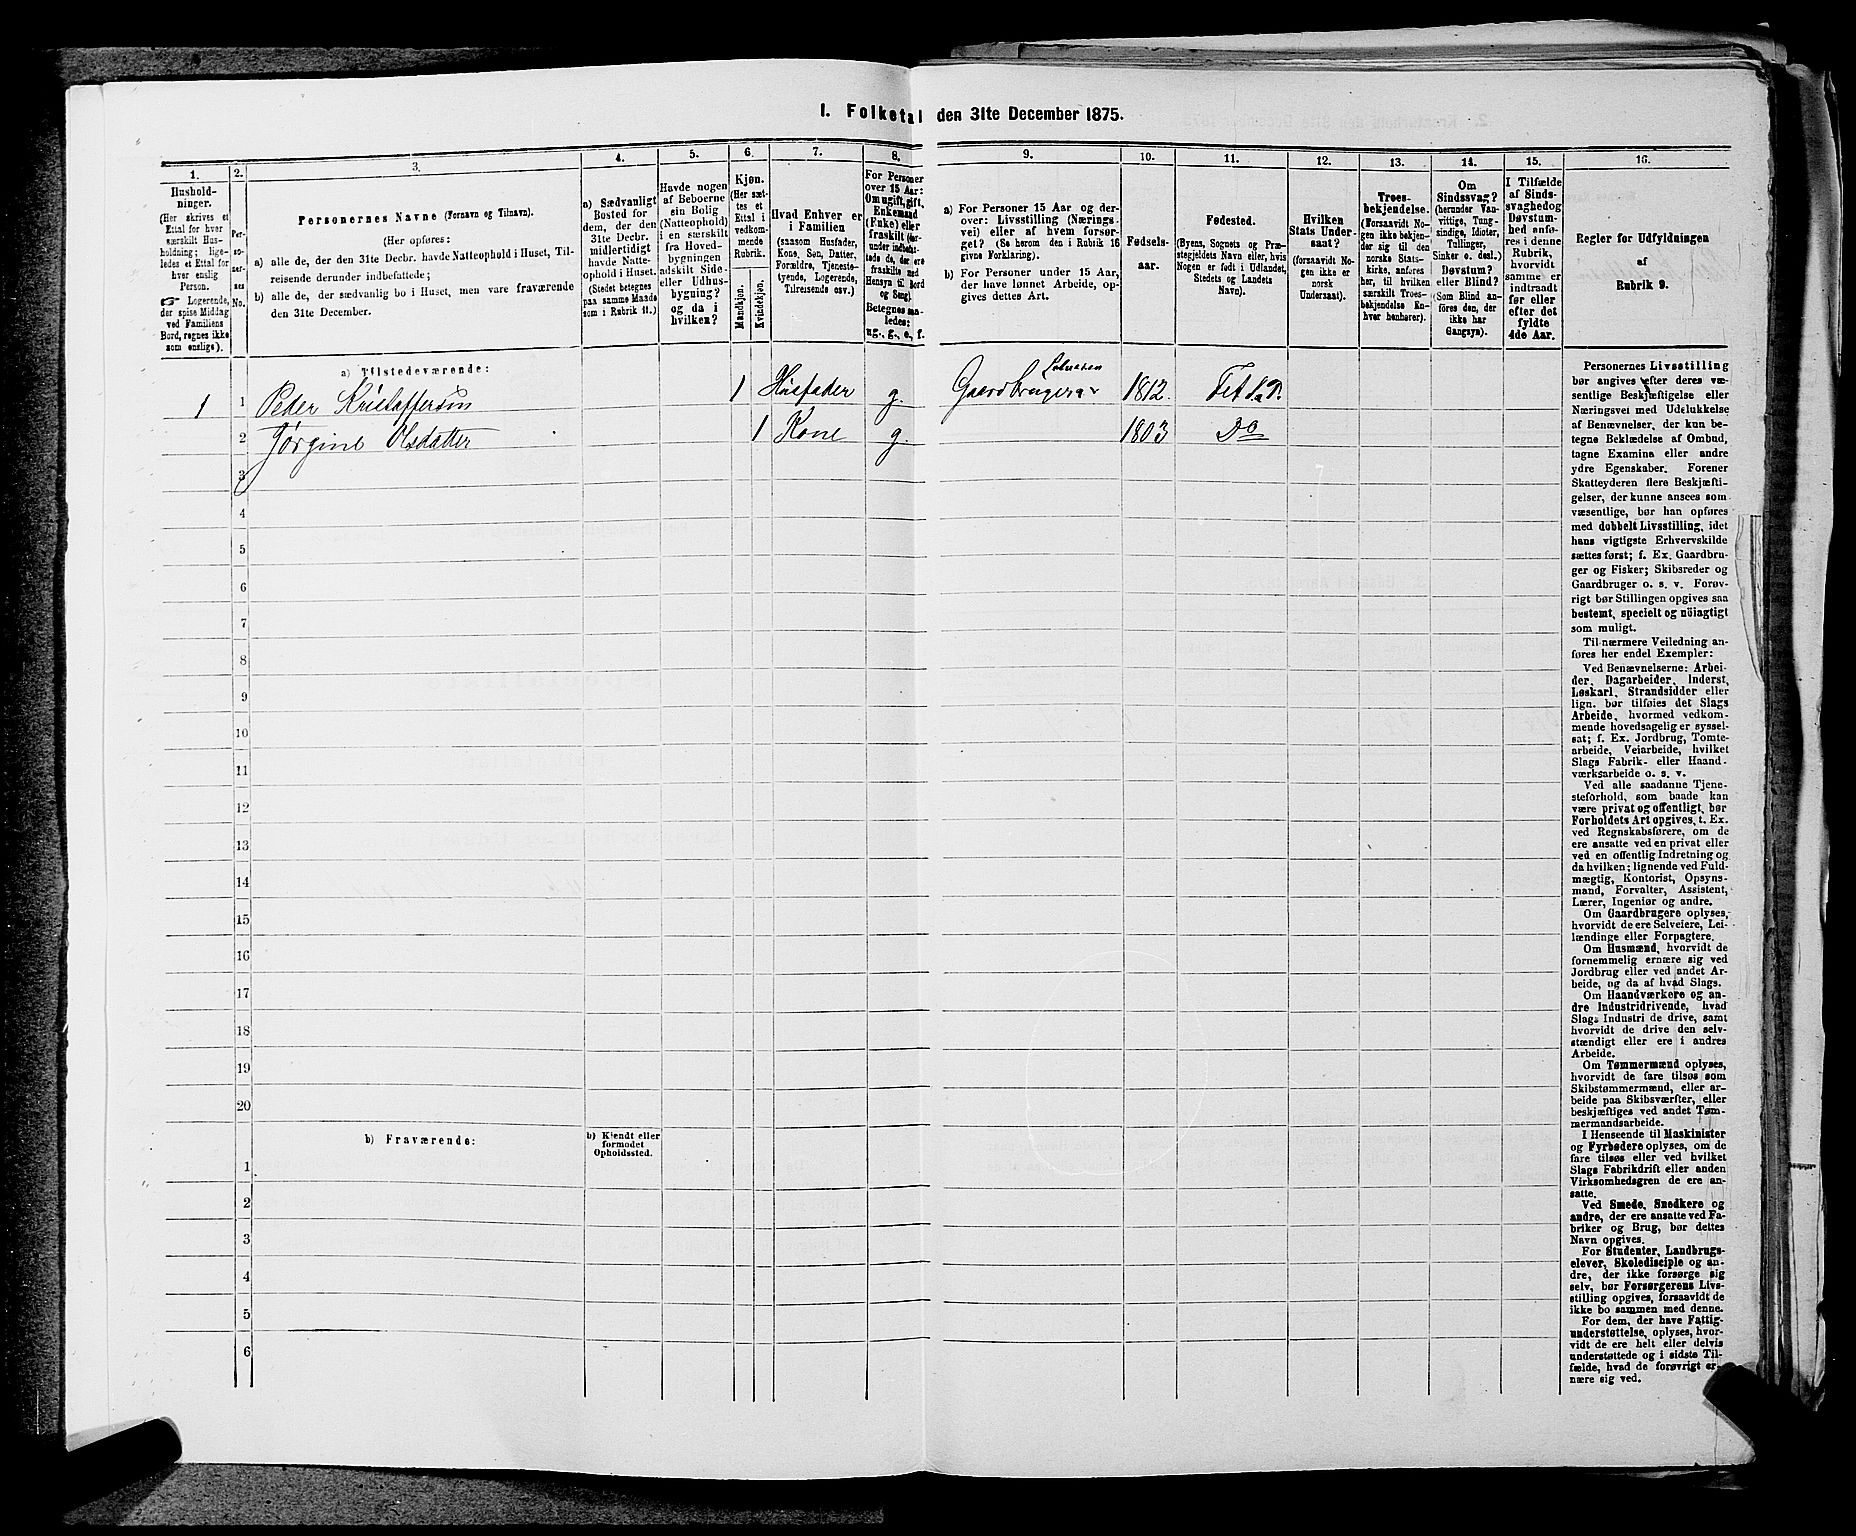 1. Folketal den 31te December 1875.
1.
Hushold-
ninger.
(Her skrives et
Ettal for hver
særskilt Hus-
holdning; lige-
ledes et Ettal for
hver enslig
Person.
☞ Logerende,
der spise Middag
ved Familiens
Bord, regnes ikke
som enslige).
2.
Per-
so-
ner-
nes
No.
3.
Personernes Navne (Fornavn og Tilnavn).
(Her opføres:
a) alle de, der den 31te Decbr. havde Natteophold i Huset, Til-
reisende derunder indbefattede;
b) alle de, der sædvanlig bo i Huset, men vare fraværende
den 31te December.
4.
a) Sædvanligt
Bosted for
dem, der den
31te Decbr.
midlertidigt
havde Natte-
ophold i Huset.
(Stedet betegnes
paa samme Maade
som i Rubrik 11.)
5.
Havde nogen
af Beboerne
sin Bolig
(Natteophold)
i en særskilt
fra Hoved-
bygningen
adskilt Side-
eller Udhus-
bygning?
og da i
hvilken?
6.
Kjøn.
(Her sæt-
tes et
Ettal i
vedkom-
mende
Rubrik.
Mandkjøn.
Kvindekjøn.
7.
Hvad Enhver er
i Familien
(saasom Husfader,
Kone, Søn, Datter,
Forældre, Tjeneste-
tyende, Logerende,
Tilreisende osv.)
8.
For Personer
over 15 Aar:
Om ugift, gift,
Enkemand
(Enke) eller
fraskilt (her-
under indbefat-
tede de, der ere
fraskilte med
Hensyn til Bord
og Seng).
Betegnes saa-
ledes:
ug., g., e., f.
9.
a) For Personer 15 Aar og der-
over: Livsstilling (Nærings-
vei) eller af hvem forsør-
get? (Se herom den i Rubrik 16
givne Forklaring).
b) For Personer under 15 Aar,
der have lønnet Arbeide, op-
gives dettes Art.
10.
Fødsels-
aar.
11.
Fødested.
(Byens, Sognets og Præ-
stegjeldets Navn, eller, hvis
Nogen er født i Udlandet,
Stedets og Landets
Navn).
12.
Hvilken
Stats Under-
saat?
(forsaavidt No-
gen ikke er
norsk
Undersaat).
13.
Troes-
bekjendelse.
(Forsaavidt No-
gen ikke bekjen-
der sig til den
norske Stats-
kirke, anføres
her, til hvilken
særskilt Troes-
bekjendelse En-
hver henhører).
14.
Om
Sindssvag?
(herunder Van-
vittige, Idioter,
Tullinger,
Sinker o. desl.)
Døvstum?
eller Blind?
(Som Blind an-
føres den, der
ikke har
Gangsyn).
15.
I Tilfælde
af Sinds-
svaghed og
Døvstum-
hed anfø-
res i denne
Rubrik,
hvorvidt
samme er
indtraadt
før eller
efter det
fyldte
4de Aar.
16.
Regler for Udfyldningen
af
Rubrik 9.
a) Tilstedeværende:
1 1 Peder Kristoffersøn 1 Husfader g. Gaardbruger Selveier 1812. Fet S. & P.
2 Jørgine Olsdatter 1 Kone g. 1803 Do
3
4
5
6
7
8
9
10
11
12
13
14
15
16
17
18
19
20
b) Fraværende:
b) Kjendt eller
formodet
Opholdssted.
1
2
3
4
5
6
Personernes Livsstilling
bør angives efter deres væ-
sentlige Beskjæftigelse eller
Næringsvei med Udelukkelse
af Benævnelser, der kun be-
tegne Beklædelse af Ombud,
tagne Examina eller andre
ydre Egenskaber. Forener
Skatteyderen flere Beskjæfti-
gelser, der kunne ansees som
væsentlige, bør han opføres
med dobbelt Livsstilling, idet
hans vigtigste Erhvervskilde
sættes først; f. Ex. Gaardbru-
ger og Fisker; Skibsreder og
Gaardbruger o. s. v. Forøv-
rigt bør Stillingen opgives saa
bestemt, specielt og nöiagtigt
som muligt.
Til nærmere Veiledning an-
føres her endel Exempler:
Ved Benævnelserne: Arbei-
der, Dagarbeider, Inderst,
Løskarl, Strandsidder eller
lign. bør tilføies det Slags
Arbeide, hvormed vedkom-
mende hovedsagelig er syssel-
sat; f. Ex. Jordbrug, Tomte-
arbeide, Veiarbeide, hvilket
Slags Fabrik- eller Haand-
værksarbeide o. s. v.
Ved alle saadanne Tjene-
steforhold, som baade kan
være privat og offentligt, bør
Forholdets Art opgives, t. Ex.
ved Regnskabsførere, om de
ere ansatte ved en privat eller
ved en offentlig Indretning og
da hvilken; lignende ved Fuld-
mægtig, Kontorist, Opsyns-
mand, Forvalter, Assistent,
Lærer, Ingeniør og andre.
Om Gaardbrugere oplyses,
hvorvidt de ere Selveiere, Lei-
lændinge eller Forpagtere.
Om Husmænd, hvorvidt de
fornemmelig ernære sig ved
Jordbrug eller ved andet Ar-
beide, og da af hvad Slags.
Om Haandværkere og an-
dre Industridrivende, hvad
Slags Industri de drive, samt
hvorvidt de drive den selv-
stændigt eller ere i andres
Arbeide.
Om Tømmermænd oplyses,
hvorvidt de fare tilsøs som
Skibstømmermænd, eller ar-
beide paa Skibsværfter, eller
beskjæftiges ved andet Tøm-
mermandsarbeide.
I Henseende til Maskinister
og Fyrbødere oplyses, om de
fare tilsøs eller ved hvilket
Slags Fabrikdrift eller anden
Virksomhedsgren de ere an-
satte.
Ved Smede, Snedkere og
andre, der ere ansatte ved Fa-
briker og Brug, bør dettes
Navn opgives.
For Studenter, Landbrugs-
elever, Skoledisciple og an-
dre, der ikke forsørge sig
selv, bør Forsørgerens Livs-
stilling opgives, forsaavidt de
ikke bo sammen med denne.
For dem, der have Fattig-
understøttelse, oplyses, hvor-
vidt de ere helt eller delvis
understøttede og i sidste Til-
fælde, hvad de forøvrigt er-
nære sig ved.